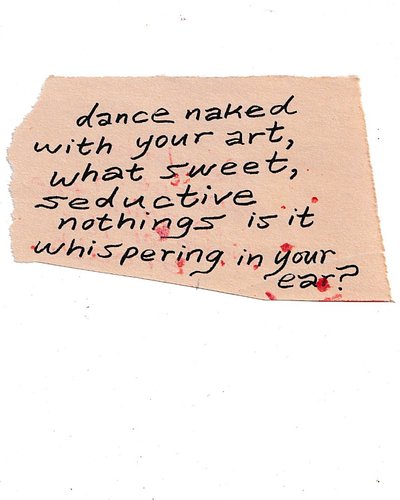 dance naked
with your art,
what sweet,
seductive
nothings is it
whispering in your
ear?